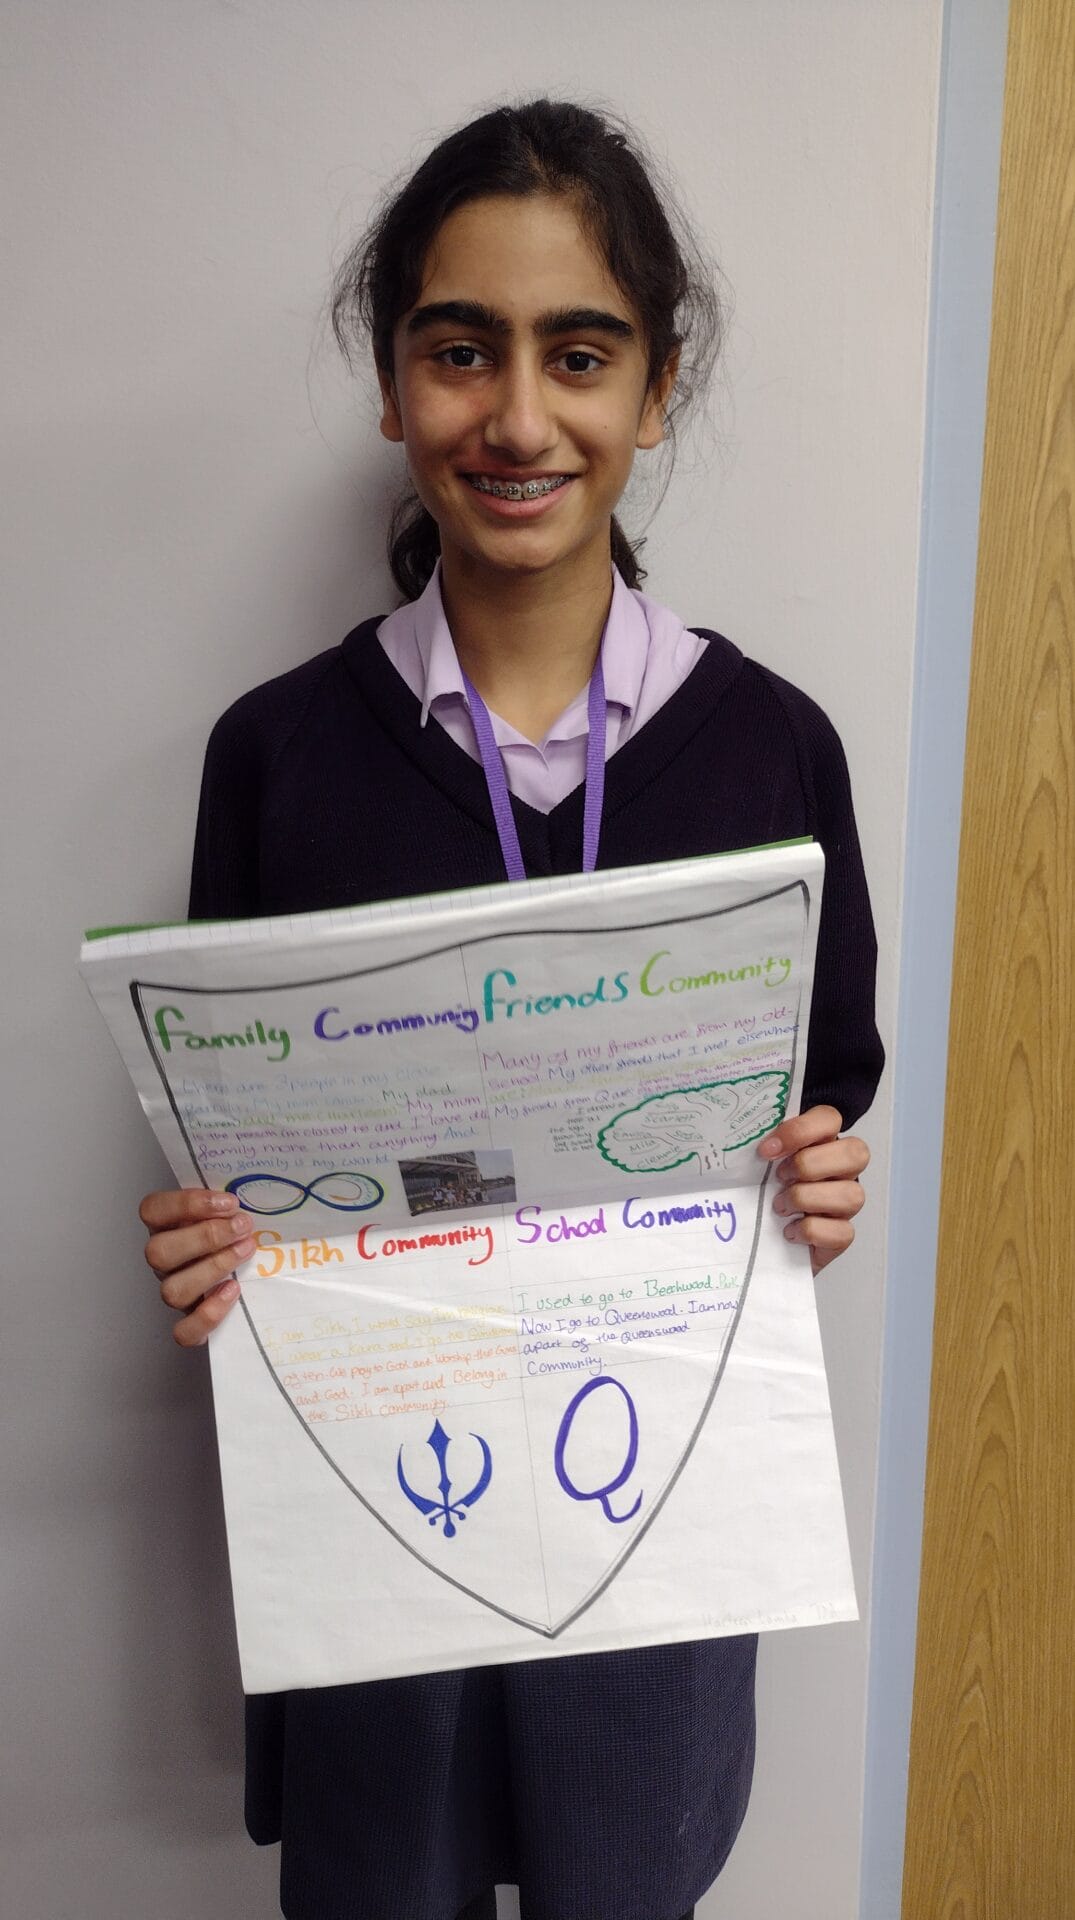 Family Community
There are 3 people in my close
family. My mum My dad
and me (Harleen). My mum
is the person I'm closest to and I love all
family more than anything And
my family is my world.
Friends Community
Many of my friends are from my old-
school. My other friends that I met elsewhere
My friends from Q are
Scarlett
Sofia
Mila
Clemmie
Clara
Florence
Sikh Community
I am Sikh, I would Say I'm religious
I wear a Kara and I go the Gurdwara
often. We pray to God and worship the Gurus
and God. I am apart and Belong in
the Sikh community.
School Community
I used to go to Beechwood Park
Now I go to Queenswood. I am now
apart of the Queenswood
Community.
Q